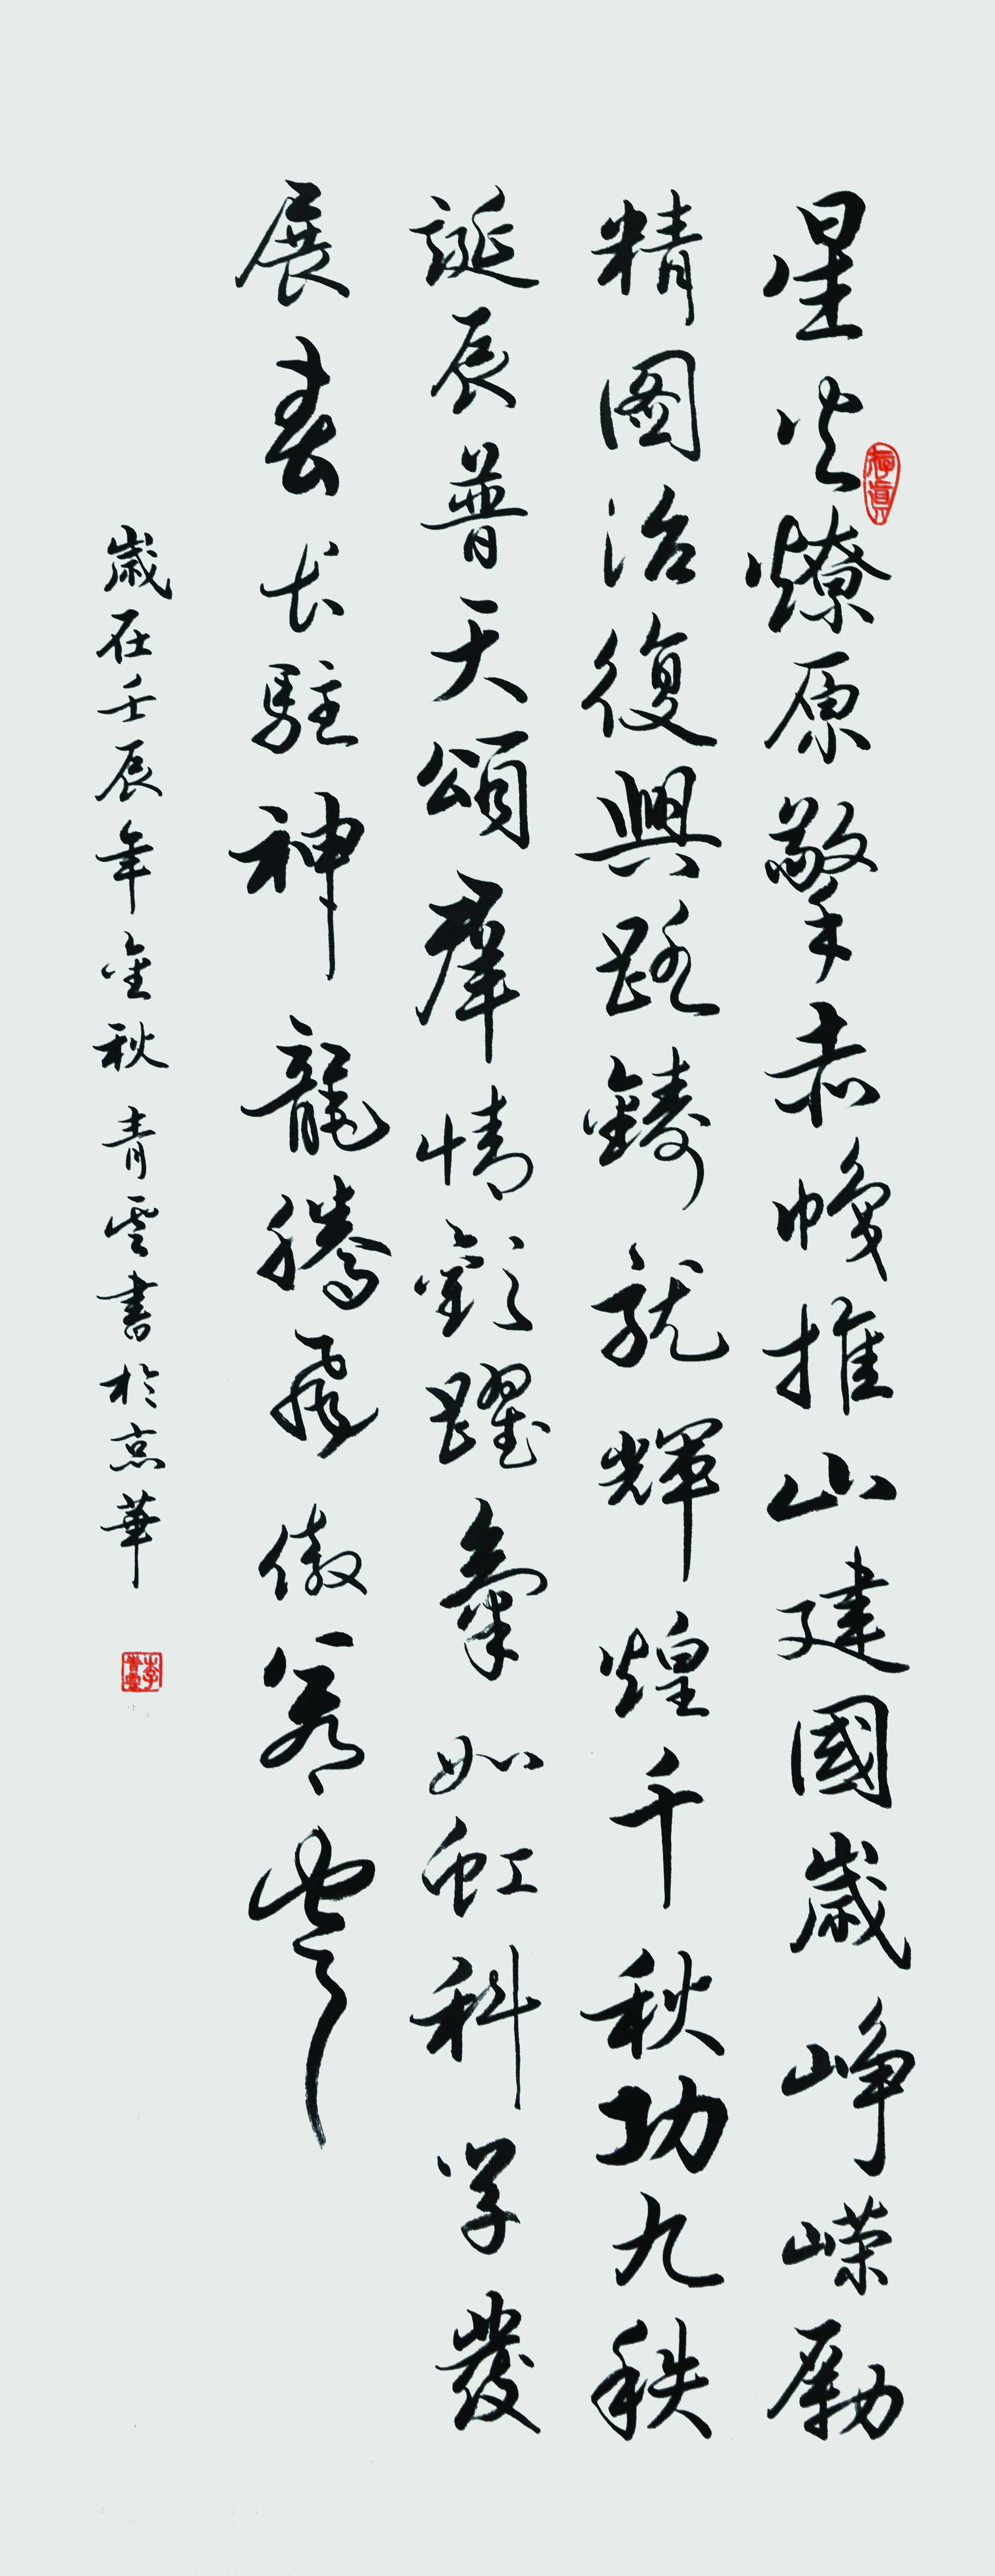 星火燎原擎赤幟推山建國歲崢嶸勵
存真
精圖治復興路鑄就輝煌千秋功九秩
誕辰普天頌羣情歡躍氣如虹科学發
展春长駐神龍騰飛傲蒼穹
歲在壬辰年金秋青雲書於京華
李青雲